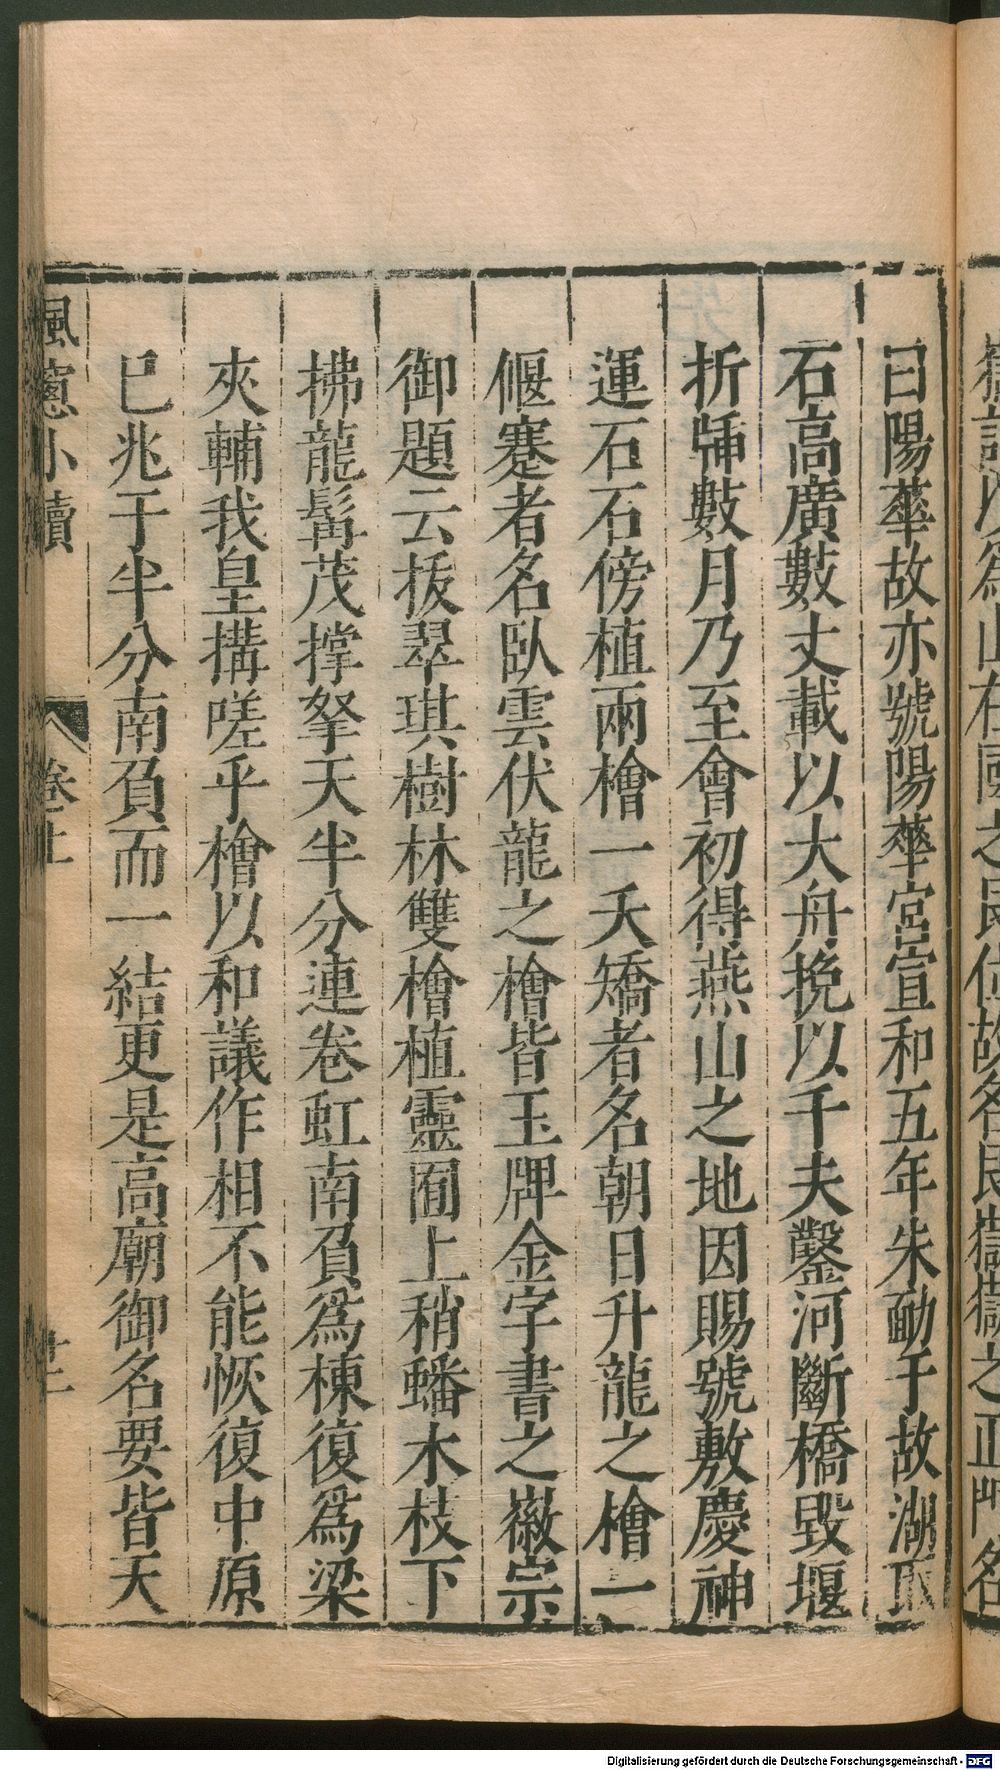 山在國之艮位故名艮嶽嶽之正門名
曰陽蕐故亦號陽蕐宮宣和五年朱勔于故湖取
石高廣數丈載以大舟挽以千夫鑿河斷橋毀堰
折牐數月乃至會初得燕山之地因賜號敷慶神
運石石傍植兩檜一夭矯者名朝日升龍之檜一
偃蹇者名臥雲伏龍之檜皆玉牌金字書之徽宗
御題云拔翠琪樹林雙檜植靈囿上稍蟠木枝下
拂龍髯茂撑拏天半分連卷虹南負爲棟復爲梁
夾輔我皇搆嗟乎檜以和議作相不能恢復中原
已兆于半分南負而一結更是高廟御名要皆天
楓窻小牘
卷上
Digitalisierung gefördert durch die Deutsche Forschungsgemeinschaft - DFG